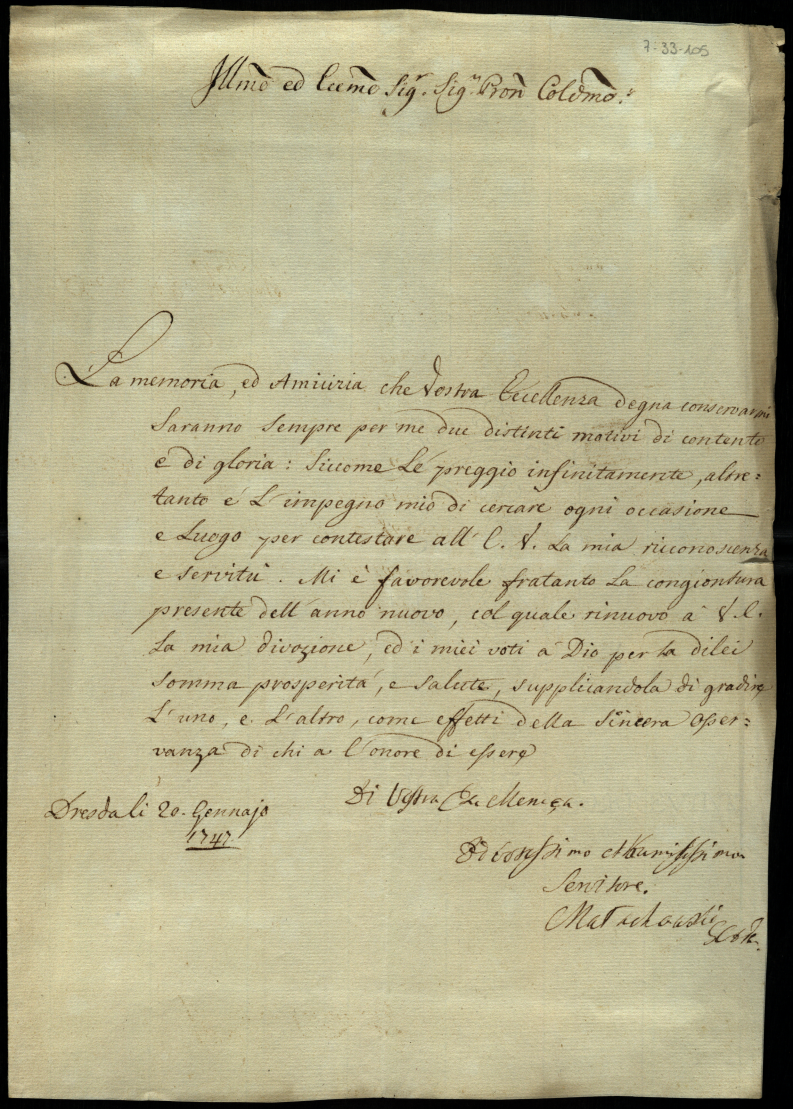 7-33-105
Illmo ed Eccmo Sigr. Sigr. Pron Colmo.
La memoria, ed Amicizia che Vostra Eccellenza degna conservarmi
saranno sempre per me due distinti motivi di contento
e di gloria: siccome Le preggio infinitamente, altre=
tanto é L'impegno mio di cercare ogni occasione
e Luogo per contestare all' E. V. La mia riconoscenza
e servitù. Mi è favorevole fratanto La congiontura
presente dell' anno nuovo, col quale rinuovo à V. E.
La mia divozione, ed i miei voti à Dio per La dilei
somma prosperità, e salute, supplicandola di gradire
L'uno, e L'altro, come effetti della sincera osser=
vanza di chi a l'onore di essere
Di Vostra Eccellenza.
Dresda li 20. Gennajo
1747.
Divotissimo et Humilissimo
Servitore.
Małachowski